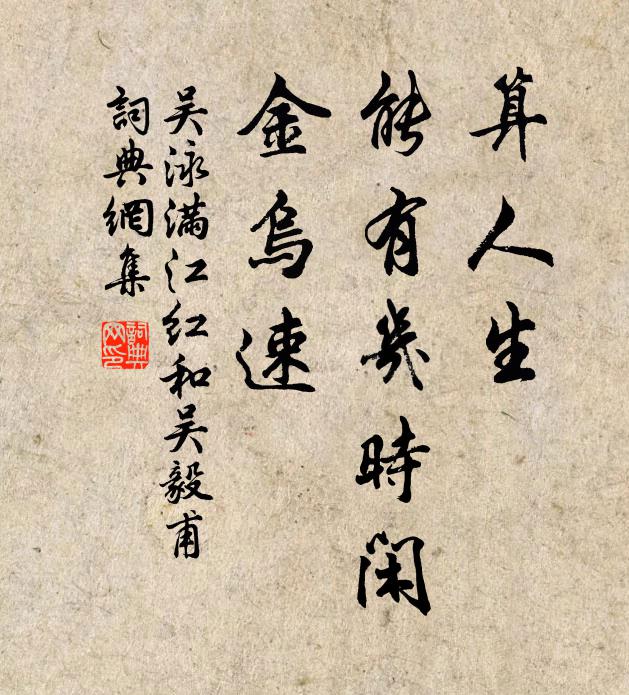 算人生
能有幾時閑
金烏速
吳泳滿江紅和吳毅甫
詞典網集
詞典網印